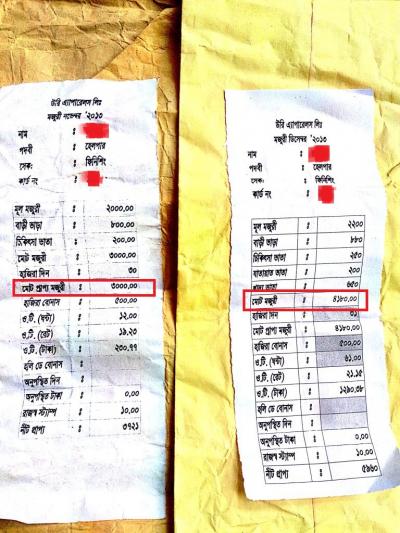 উরি এ্যাপারেলস লিঃ
মজুরী নভেম্বর '২০১৩
নাম :
পদবী : হেলপার
সেক: : ফিনিশিং
কার্ড নং :
মূল মজুরী : ২০০০,০০
বাড়ী ভাড়া : ৮০০,০০
চিকিৎসা ভাতা : ২০০,০০
মোট মজুরী : ৩০০০,০০
হাজিরা দিন : ৩০
মোট প্রাপ্য মজুরী : ৩০০০,০০
হাজিরা বোনাস : ৫০০,০০
ও.টি. (ঘন্টা) : ১২,০০
ও.টি. (রেট) : ১৯.২৩
ও.টি. (টাকা) : ২৩০,৭৭
হলি ডে বোনাস :
অনুপস্থিত দিন :
অনুপস্থিত টাকা : ০,০০
রাজস্ব স্ট্যাম্প : ১০,০০
নীট প্রাপ্য : ৩৭২১
উরি এ্যাপারেলস লিঃ
মজুরী ডিসেম্বর '২০১৩
নাম :
পদবী : হেলপার
সেক: : ফিনিশিং
কার্ড নং :
মূল মজুরী : ২২০০
বাড়ী ভাড়া : ৮৮০
চিকিৎসা ভাতা : ২৫০
যাতায়াত ভাতা : ২০০
খাদ্য ভাতা : ৬৫০
মোট মজুরী : ৪১৮০,০০
হাজিরা দিন : ৩১
মোট প্রাপ্য মজুরী : ৪১৮০,০০
হাজিরা বোনাস : ৫০০,০০
ও.টি. (ঘন্টা) : ৬১,০০
ও.টি. (রেট) : ২১.১৫
ও.টি. (টাকা) : ১২৯০,৩৮
হলি ডে বোনাস :
অনুপস্থিত দিন :
অনুপস্থিত টাকা : ০,০০
রাজস্ব স্ট্যাম্প : ১০,০০
নীট প্রাপ্য : ৫৯৬০